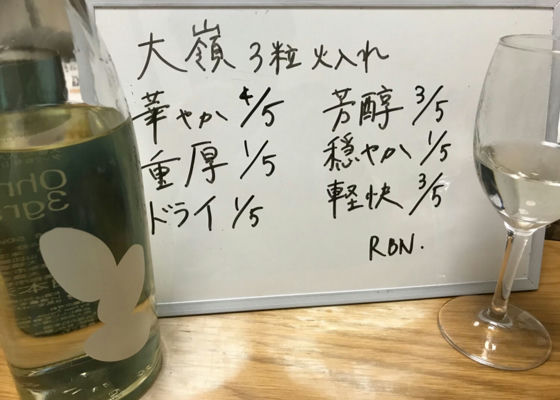 大嶺 3粒 火入れ
華やか 4/5 芳醇 3/5
重厚 1/5 穏やか 1/5
ドライ 1/5 軽快 3/5
RBN.
Ohm
3gr